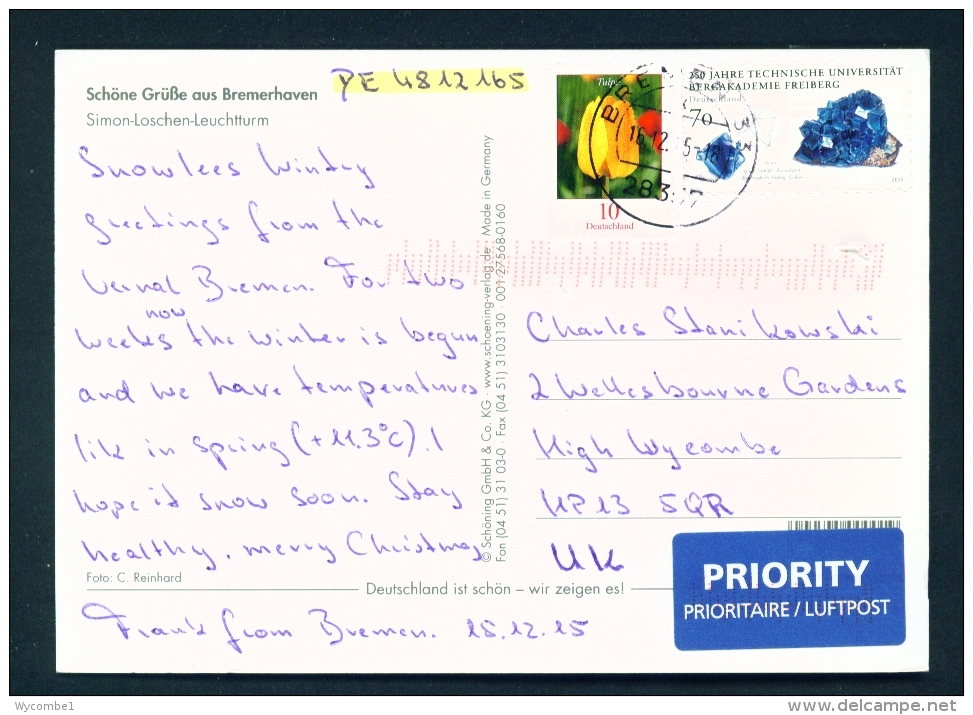 PE 4812165
Schöne Grüße aus Bremerhaven
Simon-Loschen-Leuchtturm
Snowlees Wintry
greetings from the
vernal Bremen. For two
now
weeks the winter is begun
and we have temperatures
lik in spring (+11.3°C). I
hope it snow soon. Stay
healthy, merry Christmas
Foto: C. Reinhard
Deutschland ist schön – wir zeigen es!
Frank from Bremen. 15.12.15
© Schöning GmbH & Co. KG · www.schoening-verlag.de · Made in Germany
Fon (04 51) 31 03-0 · Fax (04 51) 3103130 · 001-27568-0160
Tulpe
10
Deutschland
250 JAHRE TECHNISCHE UNIVERSITÄT
BERGAKADEMIE FREIBERG
Deutschland
70
2015
16.12.15-18
Charles Stanikowski
2 Wellesbourne Gardens
High Wycombe
HP13 5QR
UK
PRIORITY
PRIORITAIRE / LUFTPOST
Wycombe1
www.delcampe.net